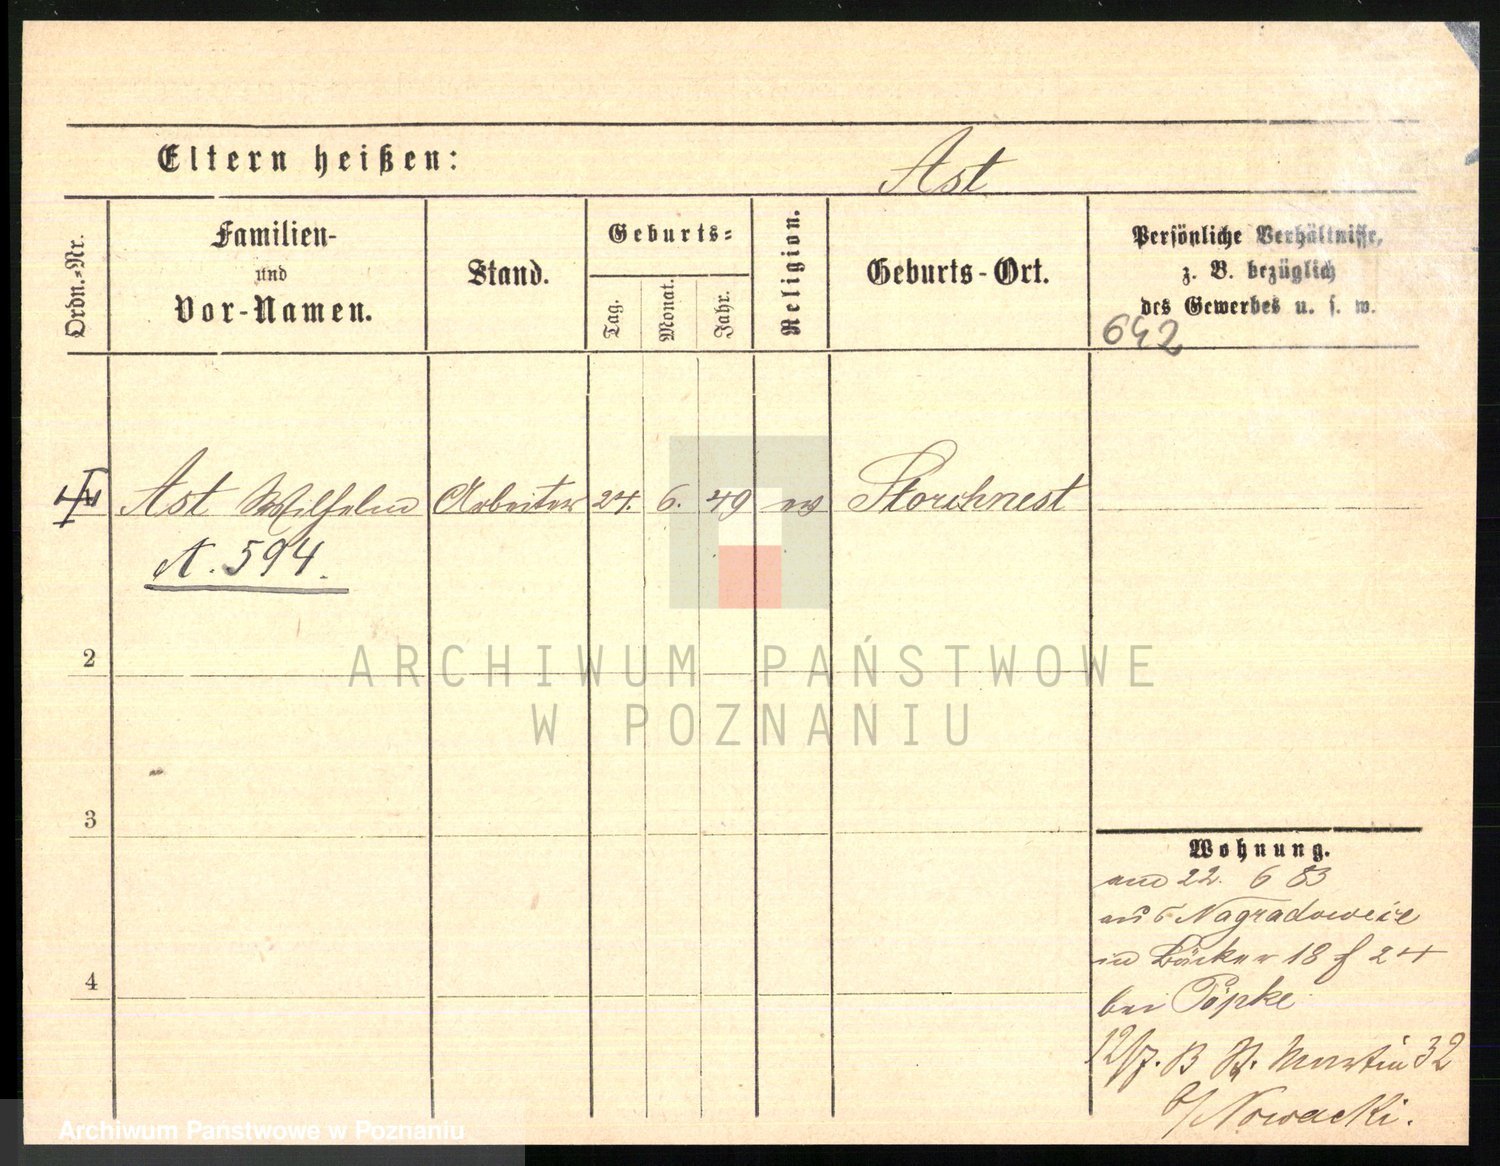 Eltern heißen:
Ast
Ordn.-Nr.
Familien-
und
Vor-Namen.
Stand.
Geburts-
Tag.
Monat.
Jahr.
Religion.
Geburts-Ort.
Persönliche Verhältnisse,
z. B. bezüglich
des Gewerbes u. s. w.
642
Ast Wilhelm Arbeiter 24. 6. 49 ev Storchnest
A. 594.
2
3
4
Wohnung.
am 22. 6 83
aus Nagradowice
in Bäcker 18 f 24
bei Pöpke
12/7. B St. Martin 32
b/ Nowacki.
ARCHIWUM PAŃSTWOWE
W POZNANIU
Archiwum Państwowe w Poznaniu